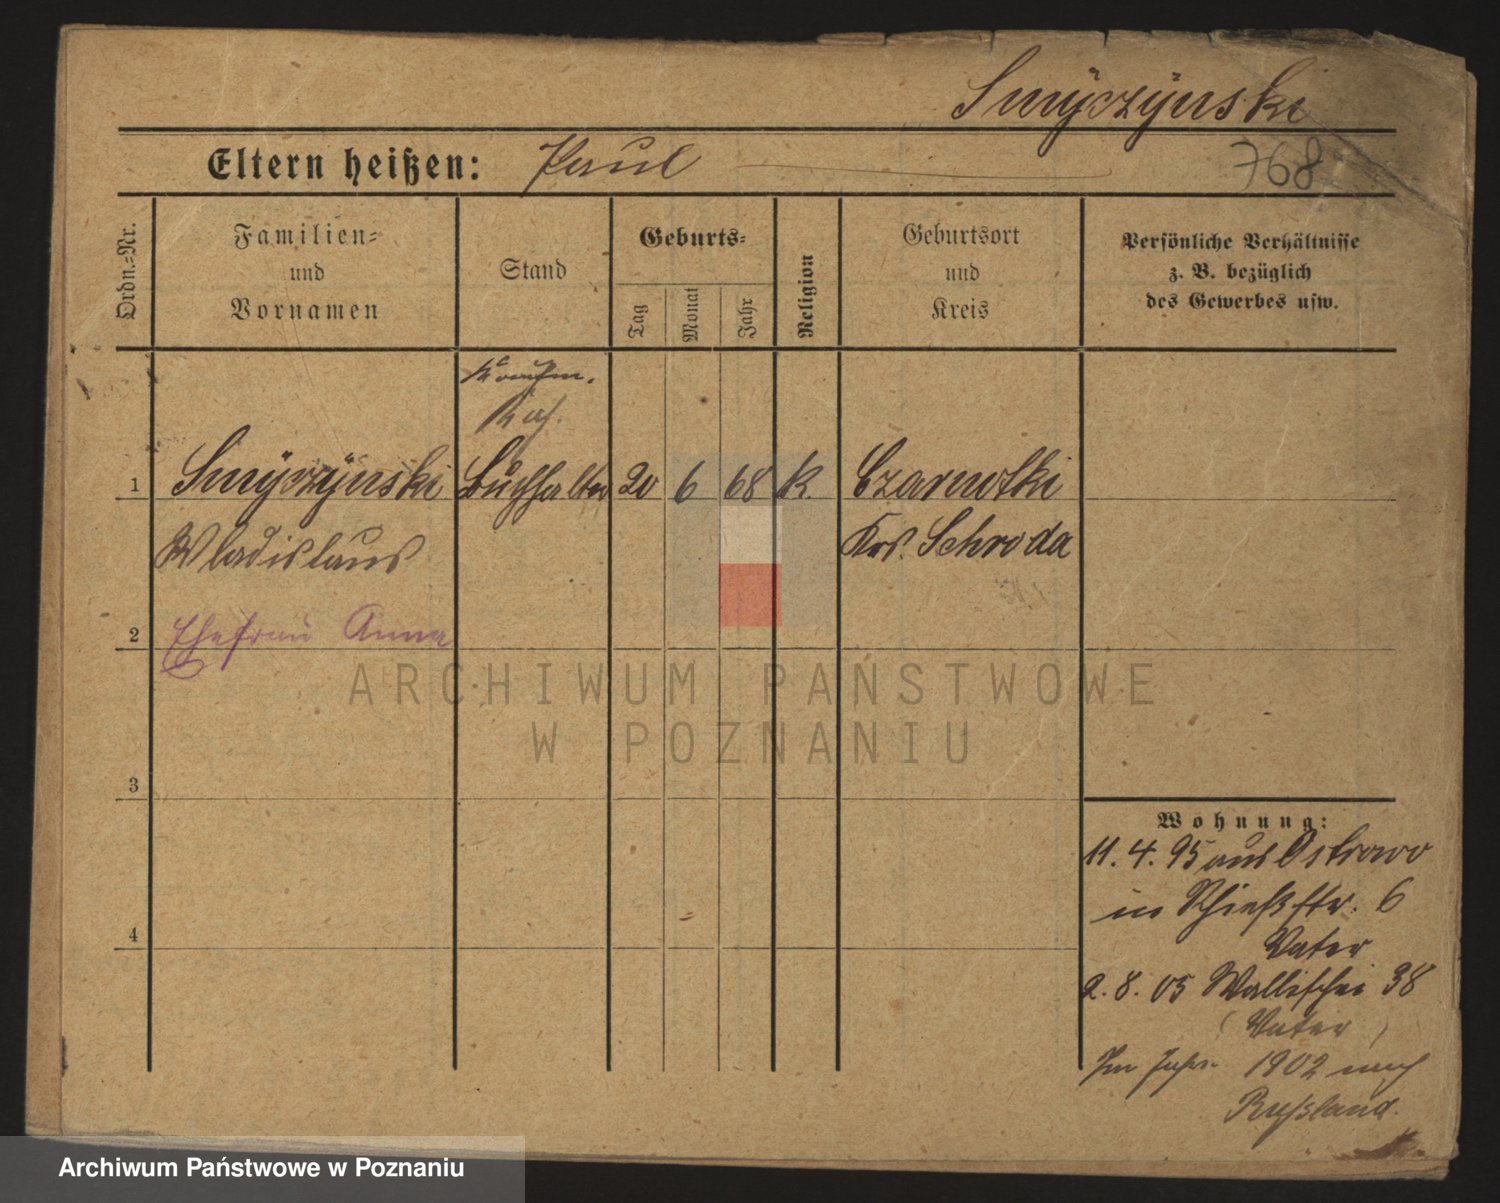 Smÿczÿnski
Eltern heißen: Paul
768
Ordn.-Nr.
Familien-
und
Vornamen
Stand
Geburts-
Tag
Monat
Jahr
Religion
Geburtsort
und
Kreis
Persönliche Verhältnisse
z. B. bezüglich
des Gewerbes usw.
Kaufm.
1 Smÿczÿnski Buchhalter 20 6 68 k. Czarnotki
Wladislaus Krs. Schroda
2 Ehefrau Anna
ARCHIWUM PAŃSTWOWE
W POZNANIU
3
4
Wohnung:
11. 4. 95 aus Ostrowo
in Schießstr. 6
Vater
2. 8. 05 Wallischei 38
(Vater)
Im Jahr. 1902 nach
Russland.
Archiwum Państwowe w Poznaniu